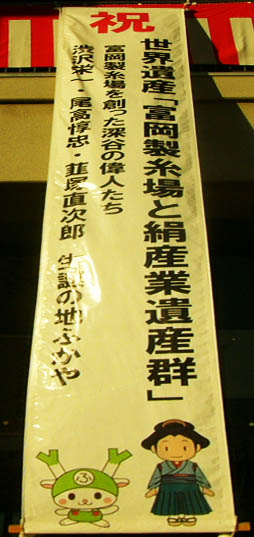 祝
世界遺産「富岡製糸場と絹産業遺産群」
富岡製糸場を創った深谷の偉人たち
渋沢栄一・尾高惇忠・韮塚直次郎 生誕の地ふかや
ふ